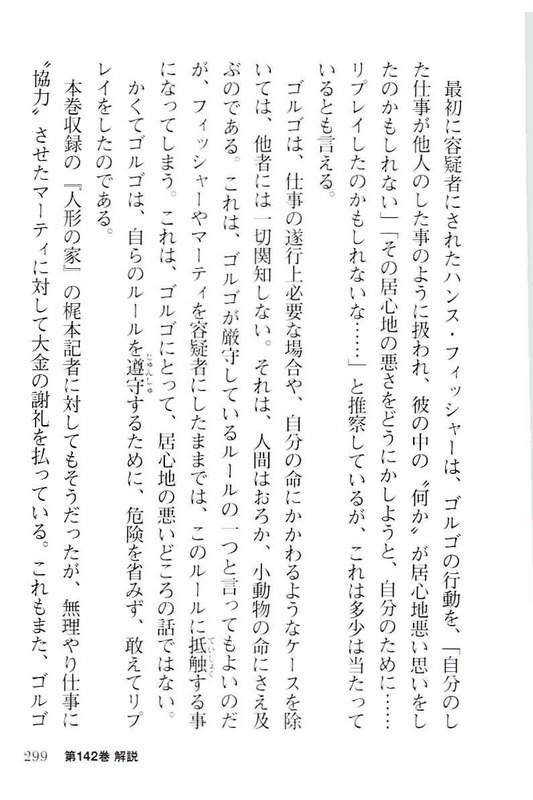 最初に容疑者にされたハンス・フィッシャーは、ゴルゴの行動を、「自分のし
た仕事が他人のした事のように扱われ、彼の中の〝何か〟が居心地悪い思いをし
たのかもしれない」「その居心地の悪さをどうにかしようと、自分のために……
リプレイしたのかもしれないな……」と推察しているが、これは多少は当たって
いるとも言える。
ゴルゴは、仕事の遂行上必要な場合や、自分の命にかかわるようなケースを除
いては、他者には一切関知しない。それは、人間はおろか、小動物の命にさえ及
ぶのである。これは、ゴルゴが厳守しているルールの一つと言ってもよいのだ
が、フィッシャーやマーティを容疑者にしたままでは、このルールに抵触する事
ていしょく
になってしまう。これは、ゴルゴにとって、居心地の悪いどころの話ではない。
かくてゴルゴは、自らのルールを遵守するために、危険を省みず、敢えてリプ
じゅんしゅ
レイをしたのである。
本巻収録の『人形の家』の梶本記者に対してもそうだったが、無理やり仕事に
〝協力〟させたマーティに対して大金の謝礼を払っている。これもまた、ゴルゴ
299 第142巻 解説